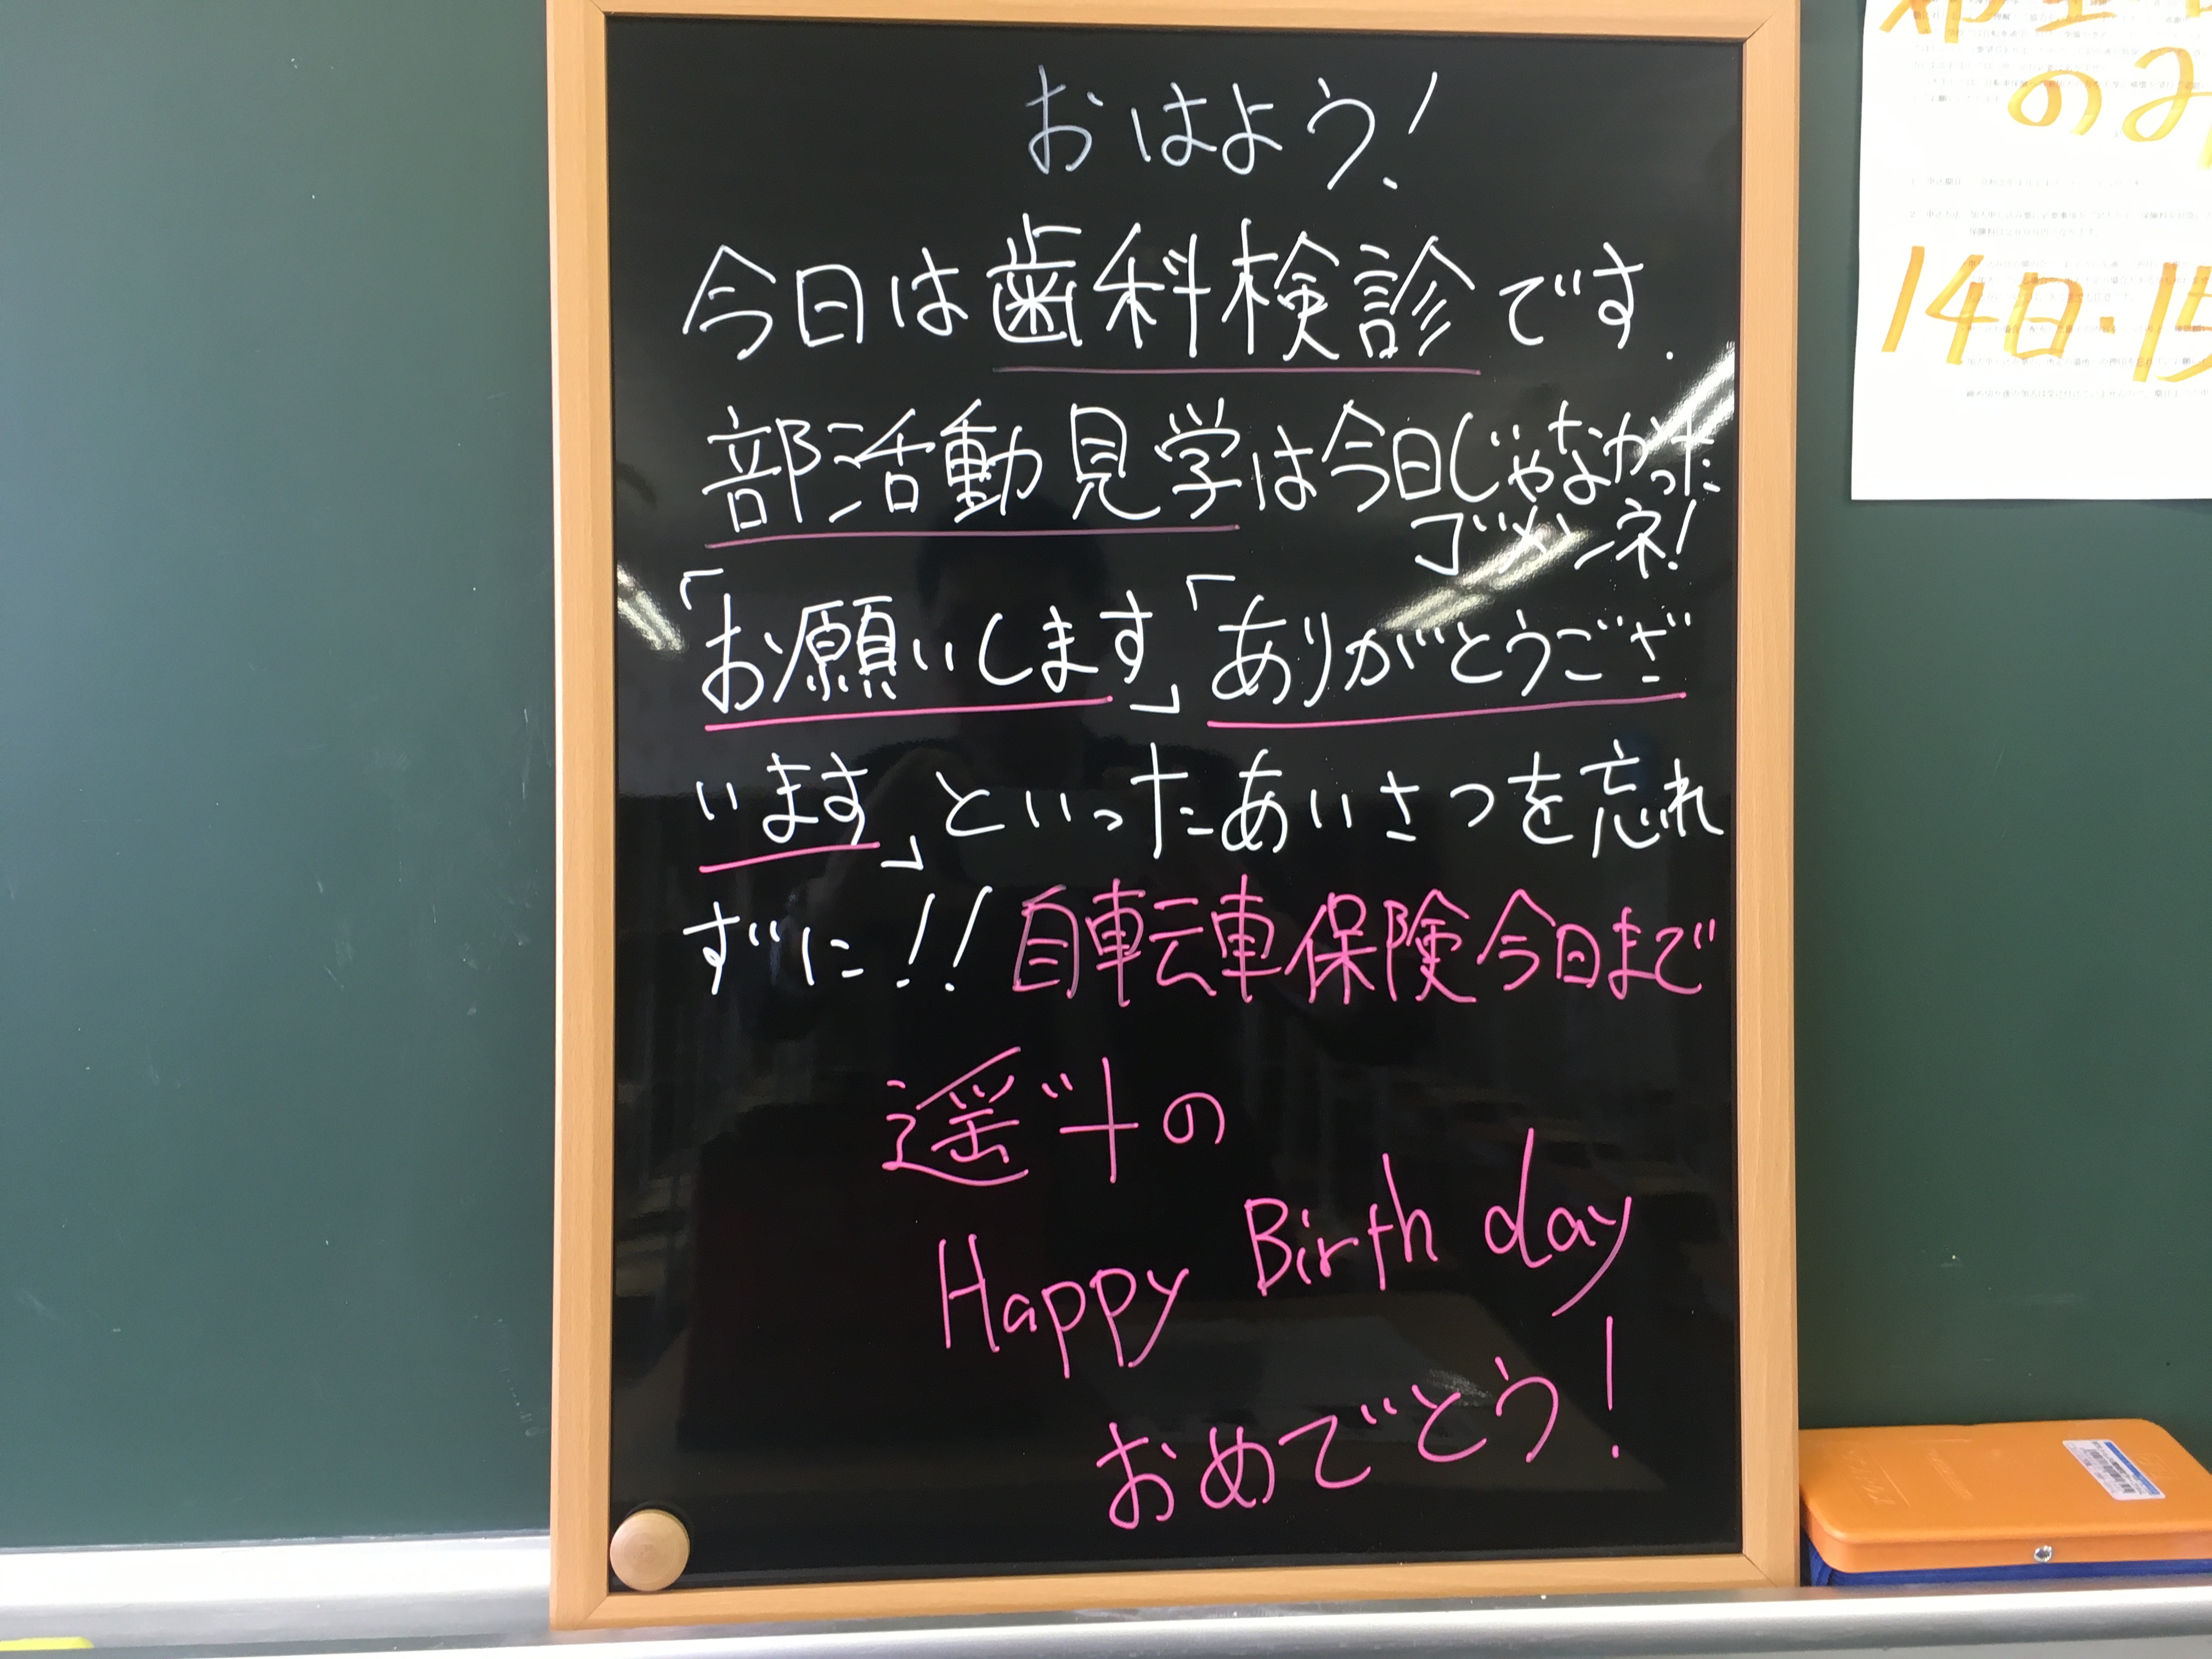 おはよう!
今日は歯科検診です.
部活動見学は今日じゃなかった
ゴメンネ!
「お願いします」「ありがとうござ
います」といったあいさつを忘れ
ずに!! 自転車保険今日まで
遥斗の
Happy Birth day
おめでとう!
のみ
14日・15